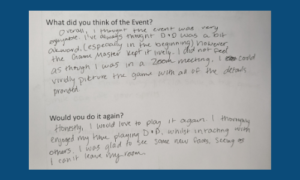 What did you think of the Event?
Overall, I thought the event was very
enjoyable. I've always thought D+D was a bit
awkward (especially in the beginning) however
the Game Master kept it lively. I did not feel
as though I was in a Zoom meeting, I could
vividly picture the game with all of the details
provided.
Would you do it again?
Honestly, I would love to play it again. I thoroughly
enjoyed my time playing D+D, whilst interacting with
others. I was glad to see some new faces, seeing as
I can't leave my